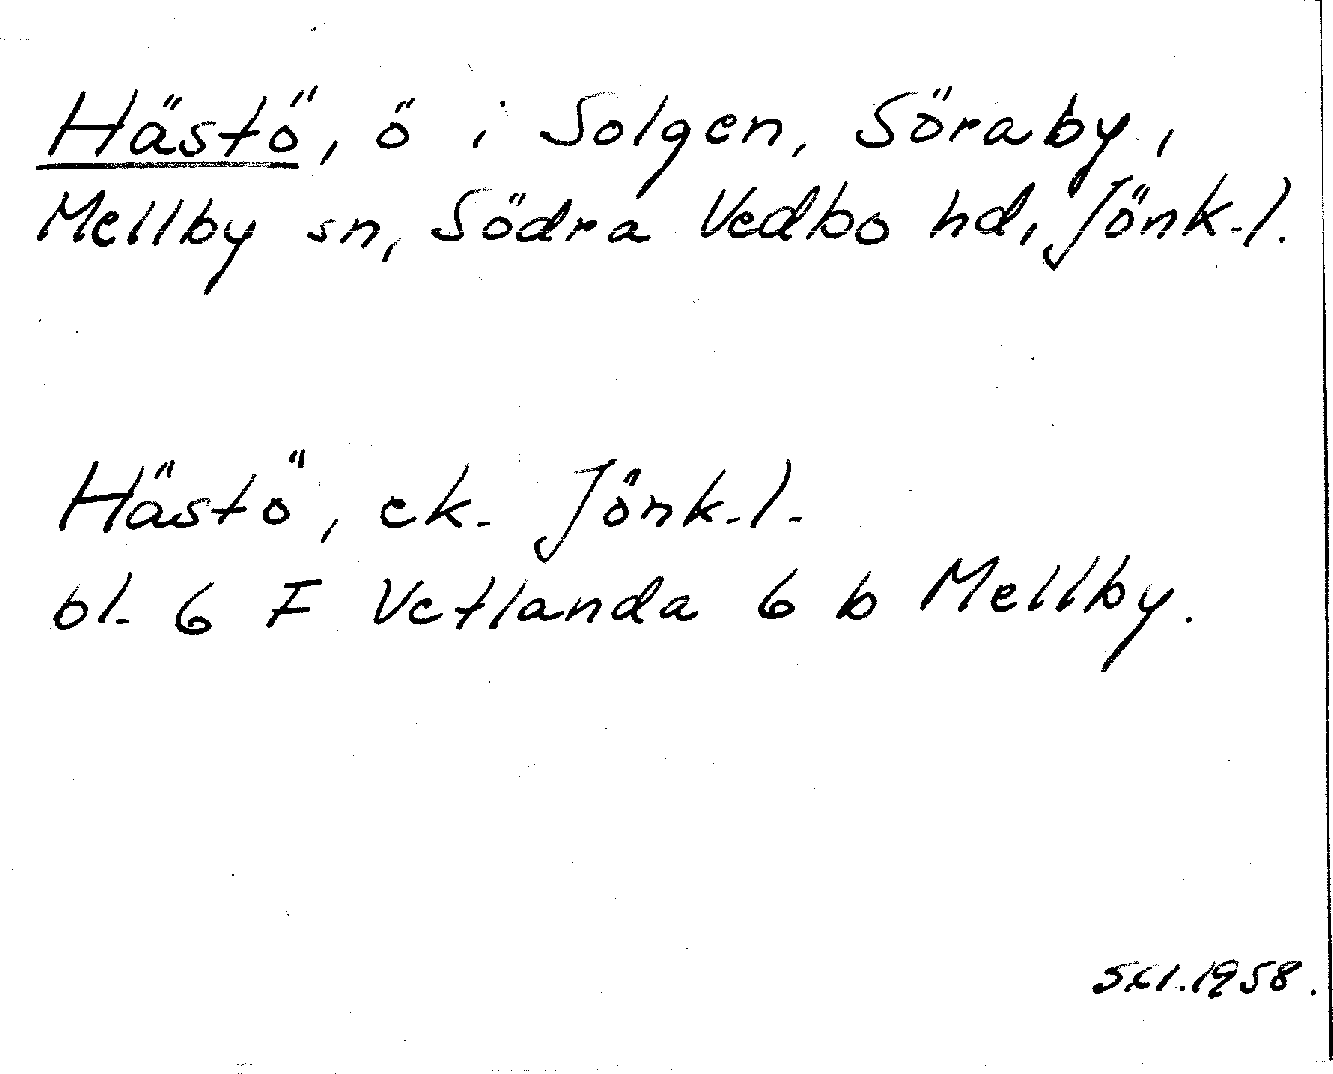 Hästö, ö i Solgen, Söraby,
Mellby sn, Södra Vedbo hd, Jönk.l.
Hästö, ek. Jönk.l.
bl. 6 F Vetlanda 6 b Mellby.
1958.